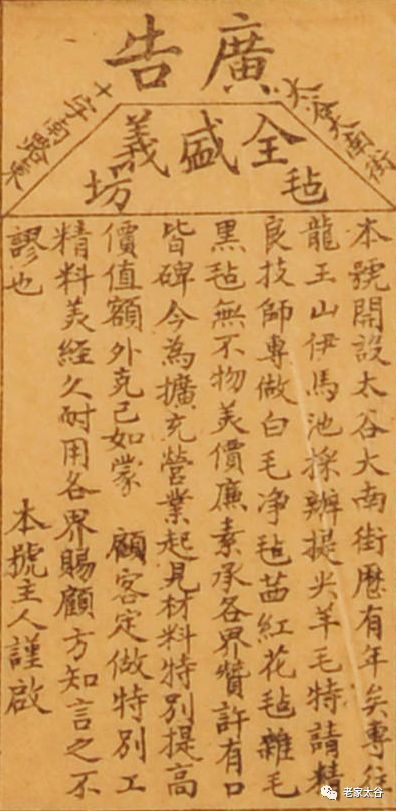 廣告
太谷大南街
十字南路東
全盛義
毡坊
本號開設太谷大南街歷有年矣專往
龍王山伊馬池採辦提尖羊毛特請精
良技師專做白毛净毡茜紅花毡雜毛
黑毡無不物美價廉素承各界贊許有口
皆碑今為擴充營業起見材料特別提高
價值額外克己如蒙　顧客定做特別工
精料美經久耐用各界賜顧方知言之不
謬也　本號主人謹啟
老家太谷